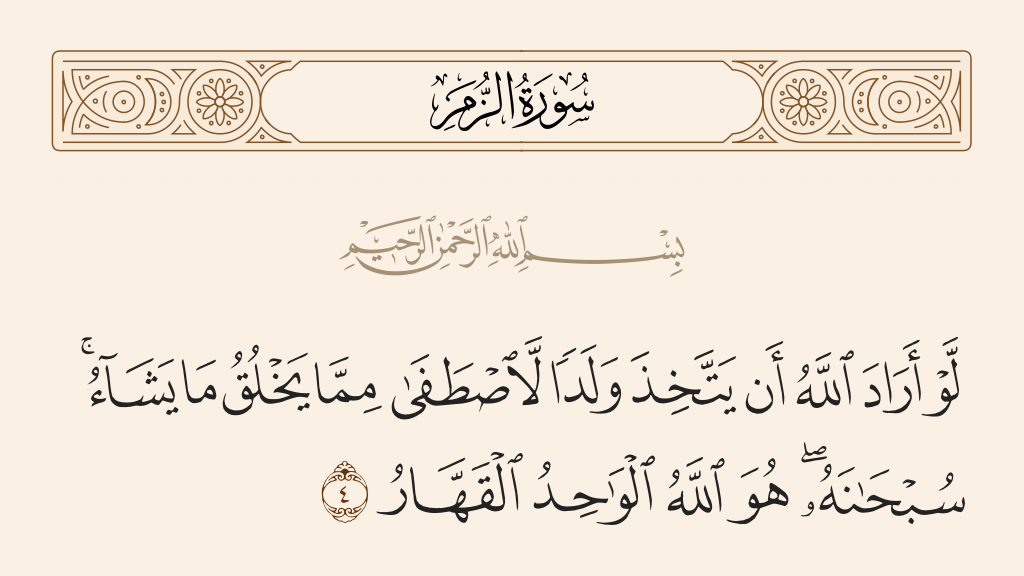 سُورَةُ الزُّمَرِ
بِسْمِ ٱللَّهِ ٱلرَّحْمَٰنِ ٱلرَّحِيمِ
لَّوْ أَرَادَ ٱللَّهُ أَن يَتَّخِذَ وَلَدًا لَّٱصْطَفَىٰ مِمَّا يَخْلُقُ مَا يَشَآءُ ۚ
سُبْحَٰنَهُۥ ۖ هُوَ ٱللَّهُ ٱلْوَٰحِدُ ٱلْقَهَّارُ ٤